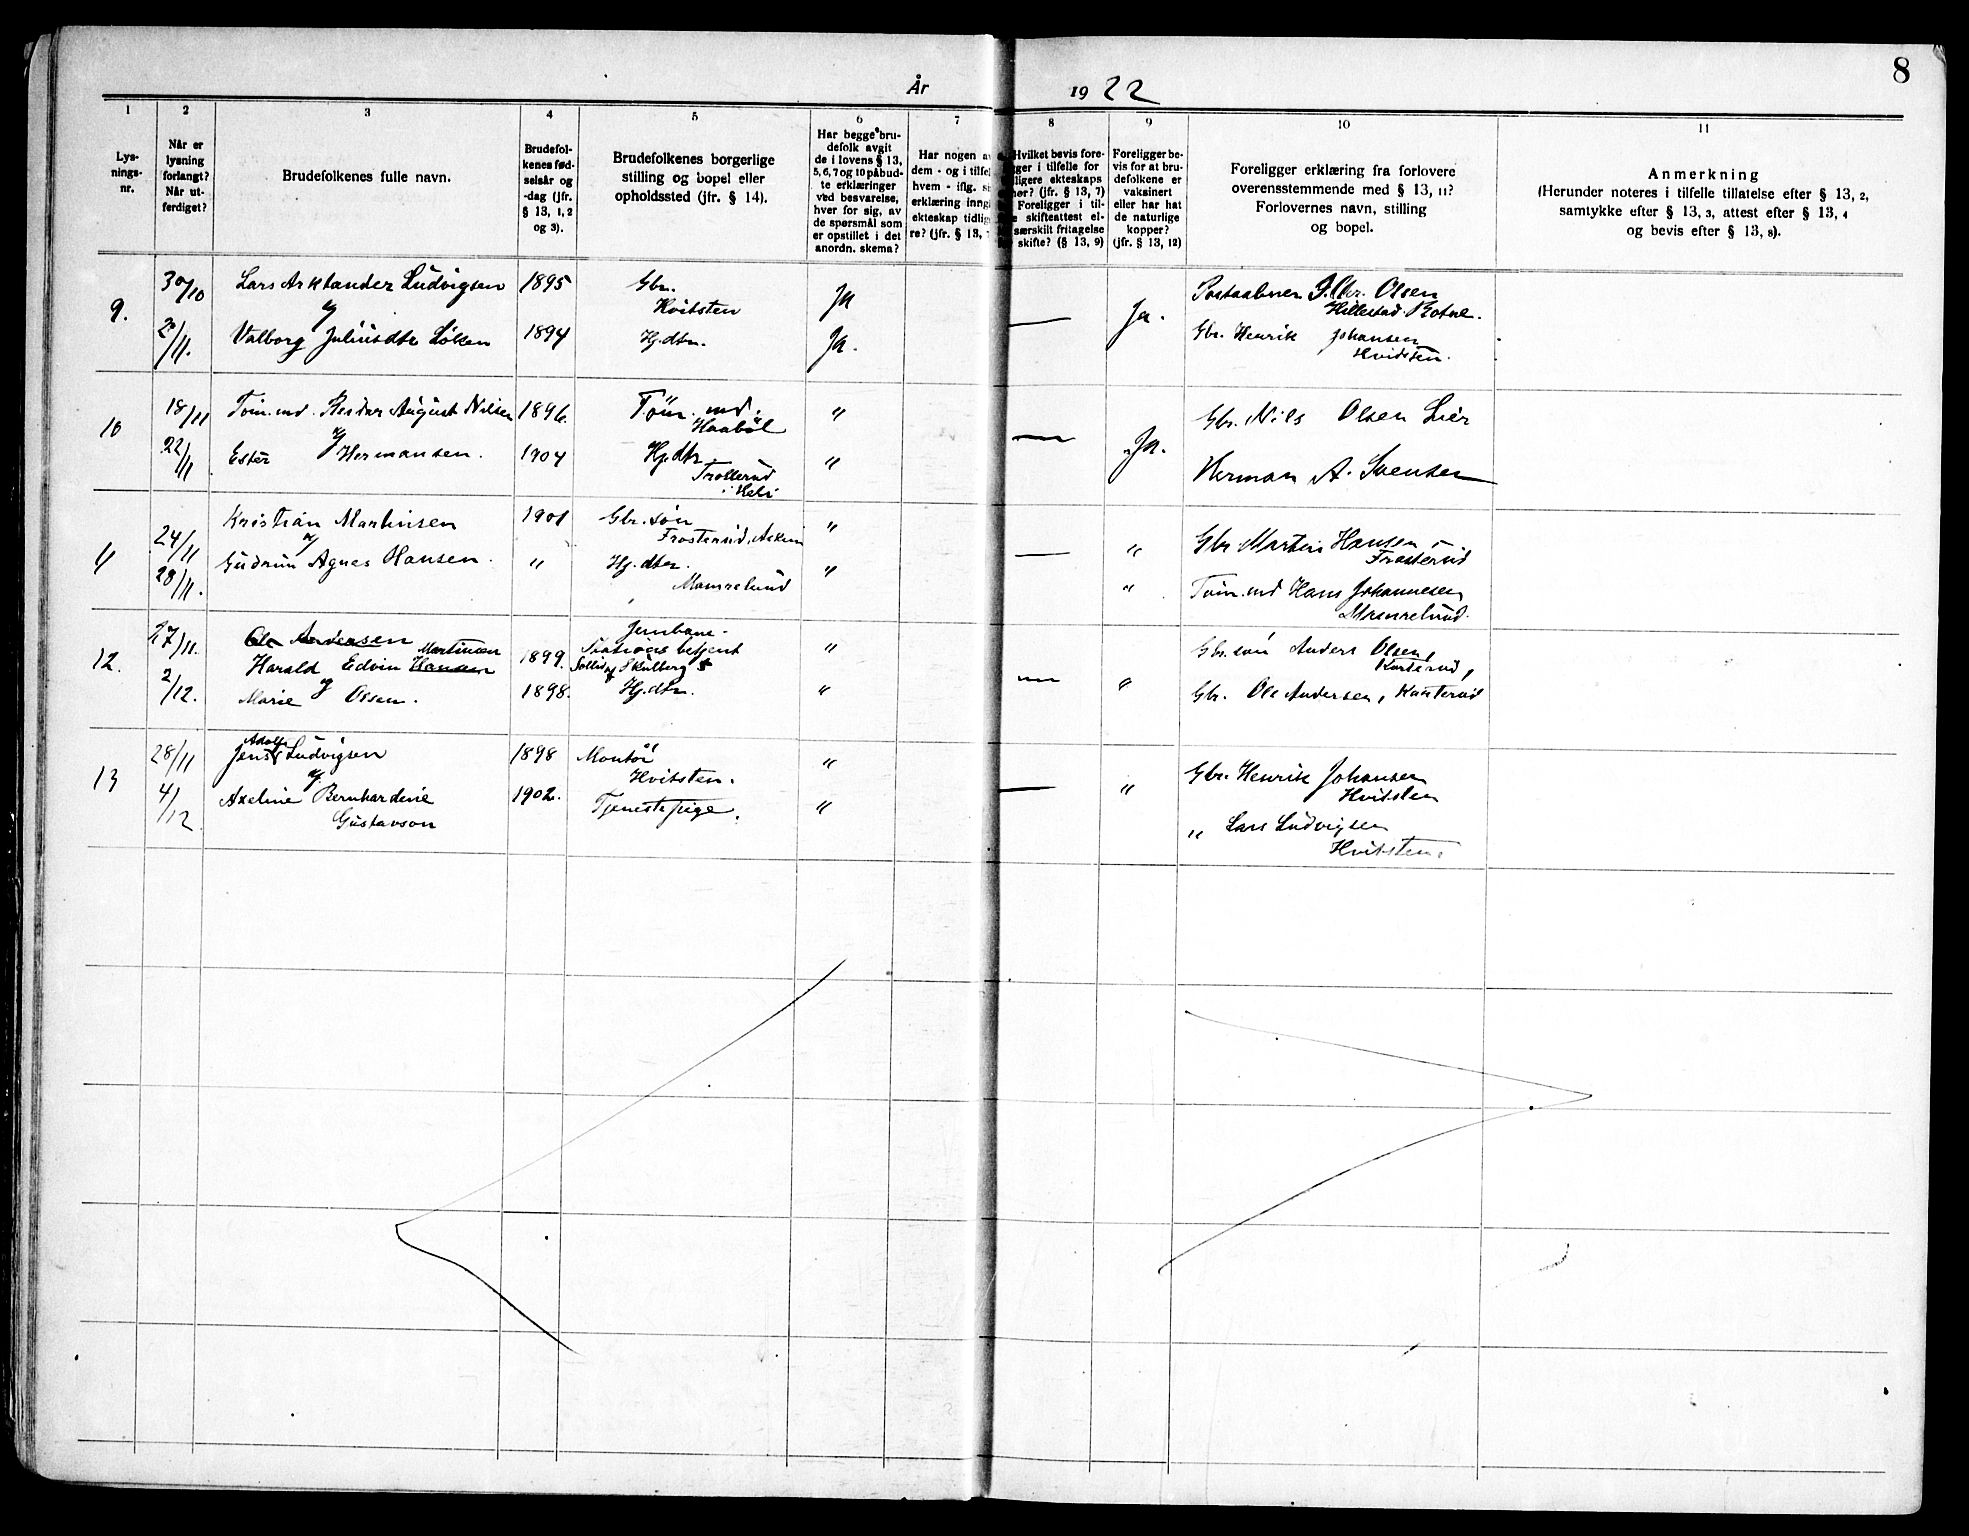 8
År 1922
1 2 3 4 5 6 7 8 9 10 11
Lys-
nings-
nr.
Når er
lysning
forlangt?
Når ut-
ferdiget?
Brudefolkenes fulle navn.
Brudefol-
kenes fød-
selsår og
-dag (jfr.
§ 13, 1, 2
og 3).
Brudefolkenes borgerlige
stilling og bopel eller
opholdssted (jfr. § 14).
Har begge bru-
defolk avgit
de i lovens § 13,
5, 6, 7 og 10 påbud-
te erklæringer
ved besvarelse,
hver for sig, av
de spørsmål som
er opstillet i det
anordn. skema?
Har nogen av
dem - og i tilfel
hvem - iflg.
erklæring inng
ekteskap tidlig
re? (jfr. § 13,
Hvilket bevis fore-
gger i tilfelle for
ligere ekteskaps
hør? (jfr. § 13, 7)
Foreligger i til-
e skifteattest el-
særskilt fritagelse
skifte? (§ 13, 9)
Foreligger be-
vis for at bru-
defolkene er
vaksinert
eller har hat
de naturlige
kopper?
(jfr. § 13, 12)
Foreligger erklæring fra forlovere
overensstemmende med § 13, 11?
Forlovernes navn, stilling
og bopel.
Anmerkning
(Herunder noteres i tilfelle tillatelse efter § 13, 2,
samtykke efter § 13, 3, attest efter § 13, 4
og bevis efter § 13, 8).
9.
30/10
2/11.
Lars Arktander Ludvigsen
og
Valborg Juliusdtr Løken
1895
1894
Gbr.
Hvitsten
Hj.dtr.
Ja
Ja.
—
Ja.
Postaabner J. Chr. Olsen
Hillestad. Botne.
Gbr. Henrik Johansen
Hvidsten.
10
18/11
22/11
Tøm.md. Reidar August Nilsen
og
Ester Hermansen.
1896.
1904
Tøm. md.
Haabøl
Hj.dtr
Trollerud
i Hobøl
"
"
—
Ja.
Gbr. Nils Olsen Lier
Herman A. Svensen
11
24/11
28/11.
Kristian Martinsen
og
Gudrun Agnes Hansen.
1901
"
Gbr. søn
Frosterud, Askim
Hj.dtr.
Mamrelund
"
"
—
"
"
Gbr. Martin Hansen
Frosterud
Tøm.md Hans Johannesen
Mamrelund.
12.
27/11.
2/12.
Ole Andersen
Martinsen
Harald Edvin Hansen
og
Marie Olsen.
1899.
1898.
Jernbane-
Stations betjent
Skulberg
Hj.dtr.
"
"
—
"
Gbr.søn Anders Olsen,
Kusterud,
Gbr. Ole Andersen, Kusterud
13
28/11
4/12
Adolf
Jens Ludvigsen
og
Axeline Bernhardine
Gustavson
1898
1902.
Montør
Hvitsten.
Tjenestepige.
"
"
—
"
Gbr. Henrik Johansen
Hvitsten
" Lars Ludvigsen
Hvitsten.